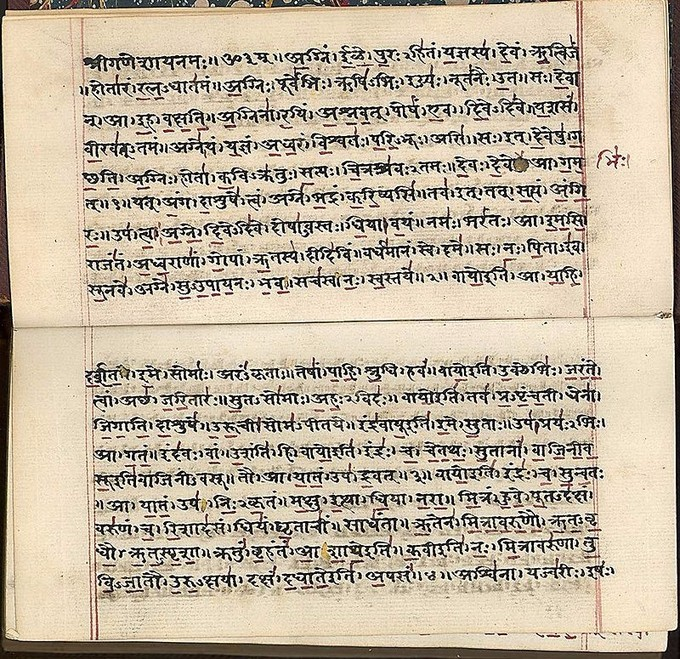 श्रीगणेशायनमः॥ॐ३म्॥ अग्निं। ईळे। पुरःऽहितं। यज्ञस्य। देवं। ऋत्विजं
॥होतारं। रत्नऽधातमं॥ अग्निः। पूर्वेभिः। ऋषिऽभिः। ईड्यः। नूतनैः। उत॥ सः। देवा
न्। आ। इह। वक्षति॥ अग्निना। रयिं। अश्नवत्। पोषं। एव। दिवेऽदिवे॥ यशसं
वीरवत्ऽतमं॥ अग्ने। यं। यज्ञं। अध्वरं। विश्वतः। परिऽभूः। असि॥ सः। इत्। देवेषु। ग
च्छति॥ अग्निः। होता। कविऽक्रतुः। सत्यः। चित्रश्रवःऽतमः॥ देवः। देवे आ। गम
भिः।
त्॥१॥ यत्। अंग। दाशुषे। त्वं। अग्ने। भद्रं। करिष्यसि॥ तव। इत्। तत्। सत्यं। अंगि
रः॥ उप। त्वा। अग्ने। दिवेऽदिवे। दोषाऽवस्तः। धिया। वयं॥ नमः। भरंतः। आ। इमसि॥
राजंतं। अध्वराणां। गोपां। ऋतस्य। दीदिविं॥ वर्धमानं। स्वे। दमे॥ सः। नः। पिताऽइव
सूनवे। अग्ने। सुऽउपायनः। भव॥ सचस्व। नः। स्वस्तये॥२॥ वायोइति। आ। याहि।
दर्शत। इमे। सोमाः। अरंऽकृताः॥ तेषां। पाहि। श्रुधि। हवं॥ वायोइति। उक्थेभिः। जरंते
त्वां। अच्छ। जरितारः॥ सुतऽसोमाः। अहःऽविदः॥ वायोइति। तव। प्रऽपृंचती। धेना।
जिगाति। दाशुषे॥ उरूची। सोमऽपीतये॥ इंद्रवायूइति। इमे। सुताः। उप। प्रयःऽभिः।
आ। गतं॥ इंदवः। वां। उशंति। हि॥ वायोइति। इंद्रः। च। चेतथः। सुतानां। वाजिनीव
सूइतिवाजिनीऽवसू॥ तौ। आ। यातं। उप। द्रवत्॥३॥ वायोइति। इंद्रः। च। सुन्वतः
॥आ। यातं। उप। निःऽकृतं॥ मक्षु। इत्था। धिया। नरा॥ मित्रं। हुवे। पूतऽदक्षं।
वरुणं। च। रिशादसं॥ धियं। घृताचीं। साधंता॥ ऋतेन। मित्रावरुणौ। ऋतऽवृ
धौ। ऋतऽस्पृशा॥ क्रतुं। बृहंतं। आशाथेइति॥ कवीइति। नः। मित्रावरुणा। तु
विऽजातौ। उरुऽक्षया॥ दक्षं। दधातेइति। अपसं॥४॥ अश्विना। यज्वरीः। इषः।